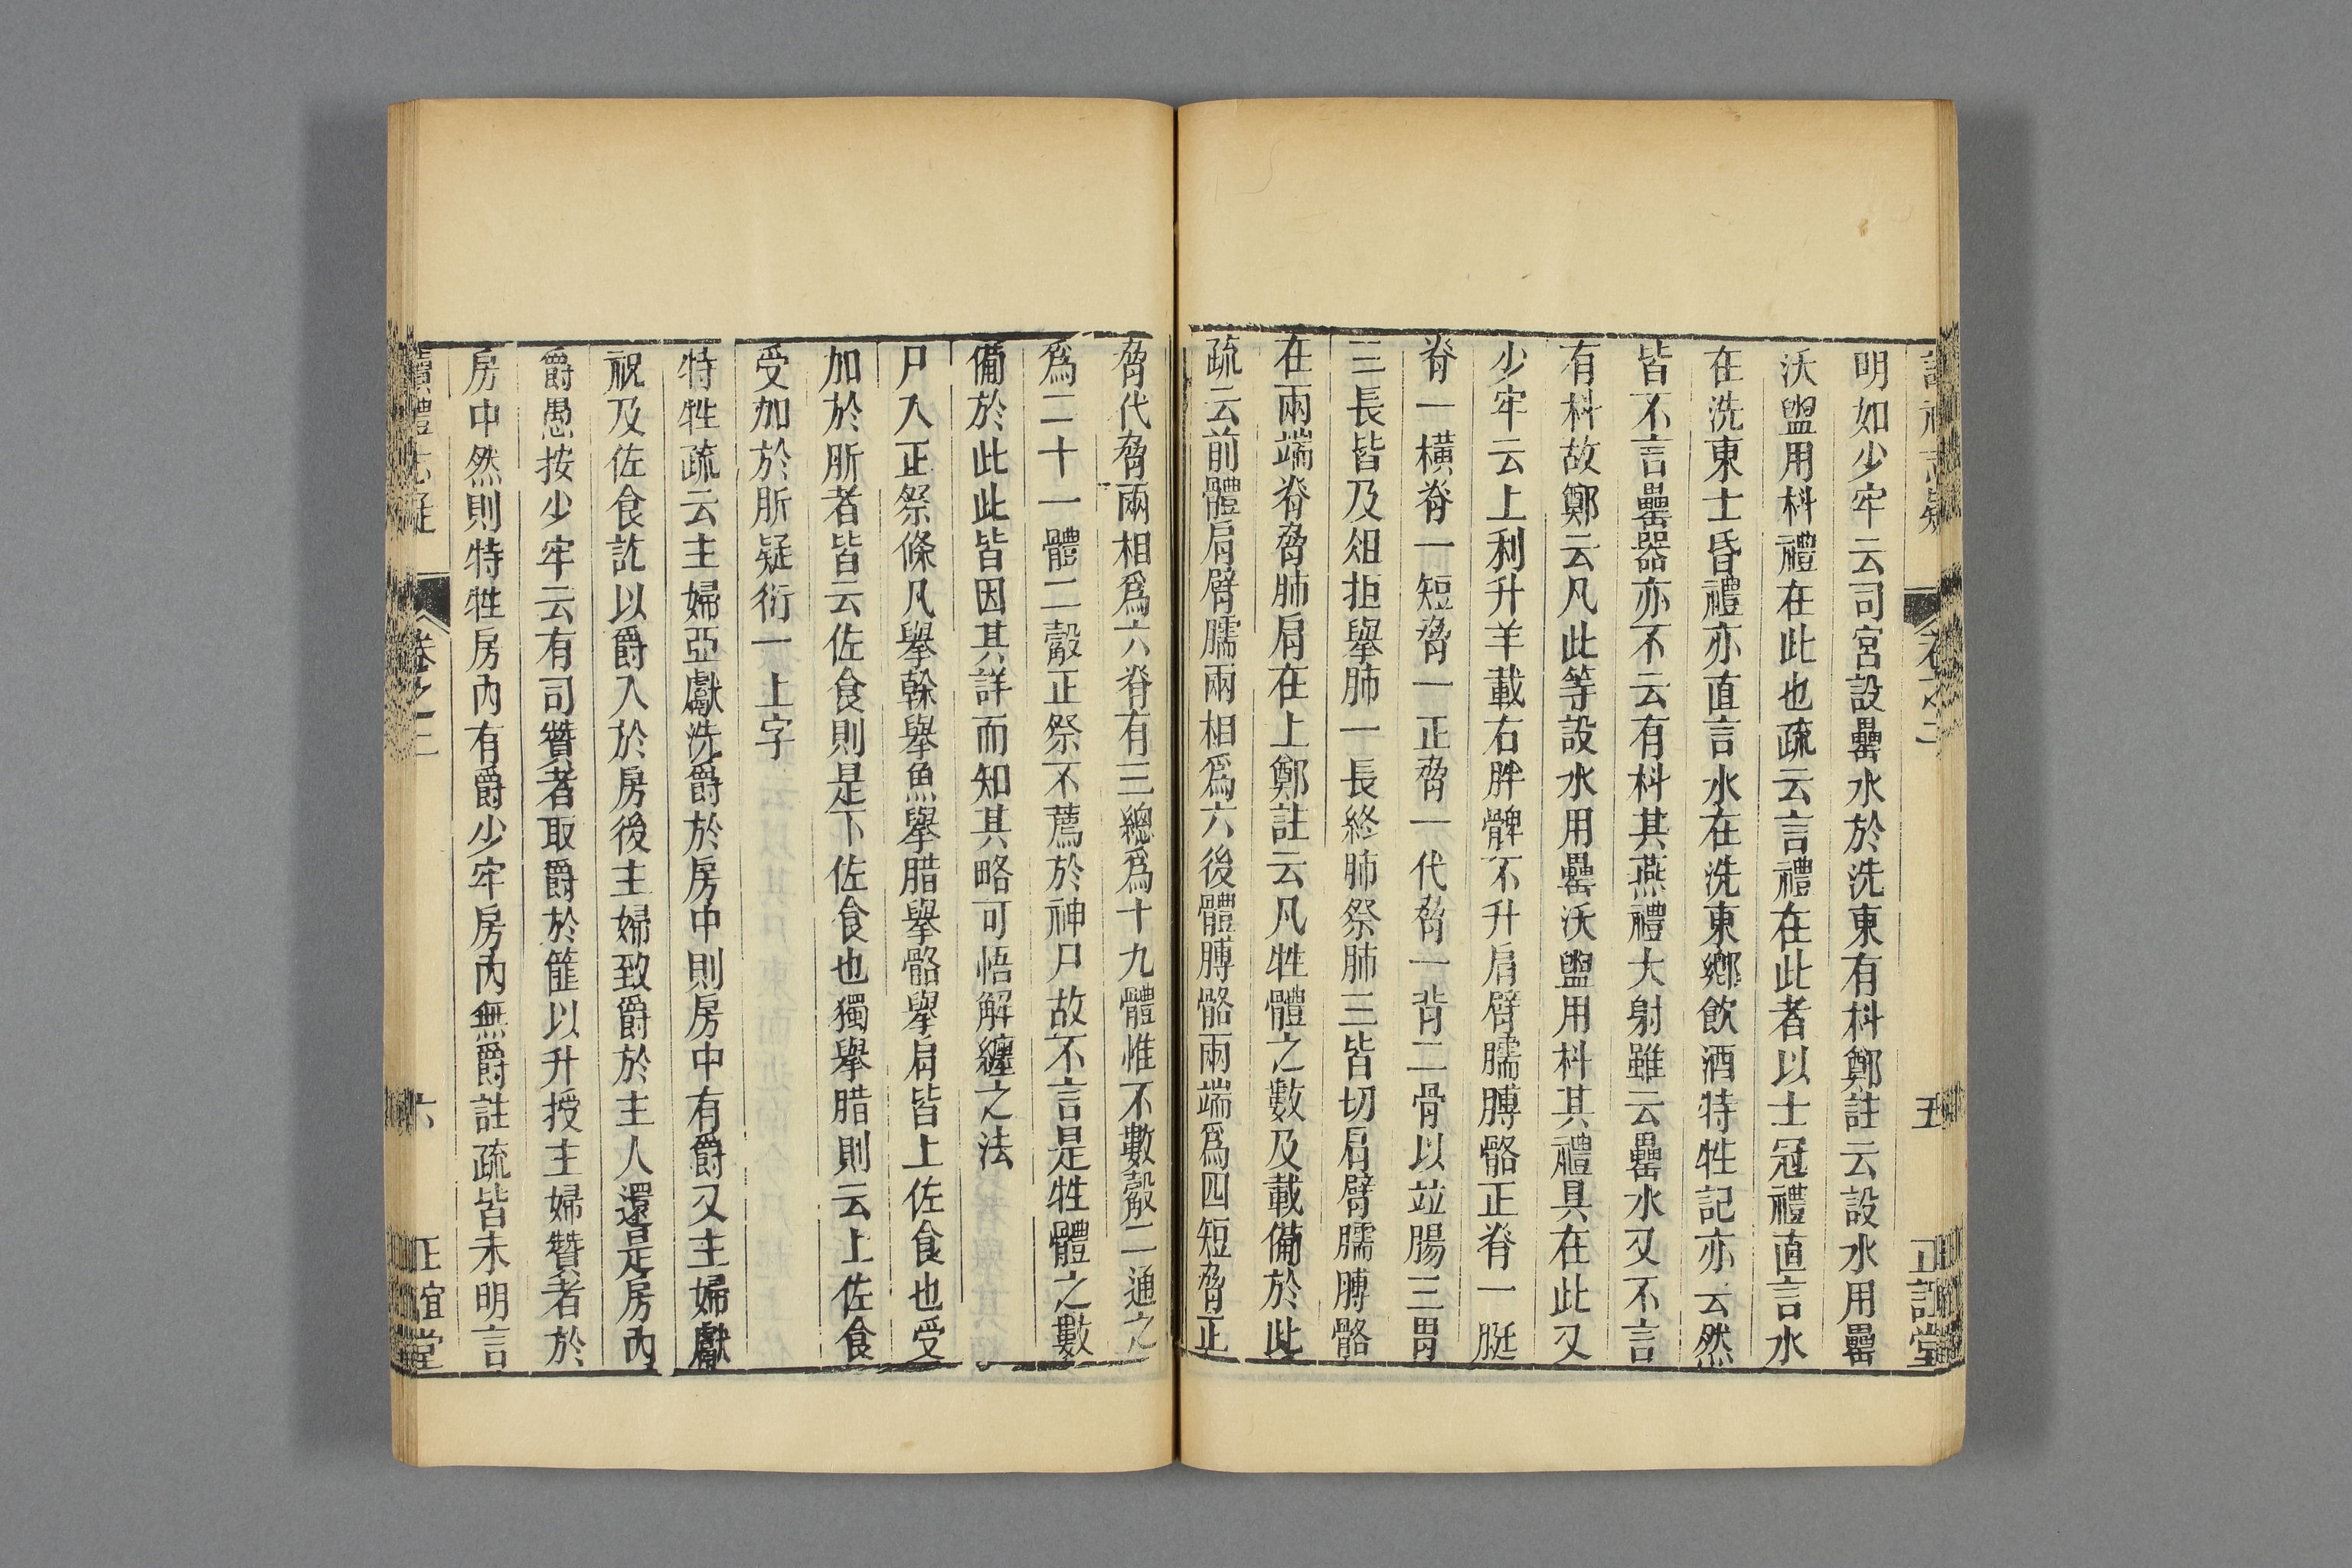 讀禮志疑 卷之三 五 正誼堂
明如少牢云司宮設罍水於洗東有枓鄭註云設水用罍
沃盥用枓禮在此也疏云言禮在此者以士冠禮直言水
在洗東士昏禮亦直言水在洗東鄉飲酒特牲記亦云然
皆不言罍器亦不云有枓其燕禮大射雖云罍水又不言
有枓故鄭云凡此等設水用罍沃盥用枓其禮具在此又
少牢云上利升羊載右胖髀不升肩臂臑膊骼正脊一脡
脊一橫脊一短脅一正脅一代脅一背二骨以竝腸三胃
三長皆及俎拒舉肺一長終肺祭肺三皆切肩臂臑膊骼
在兩端脊脅肺肩在上鄭註云凡牲體之數及載備於此
疏云前體肩臂臑兩相爲六後體膊骼兩端爲四短脅正
脅代脅兩相爲六脊有三總爲十九體惟不數觳二通之
爲二十一體二觳正祭不薦於神尸故不言是牲體之數
備於此此皆因其詳而知其略可悟解纏之法
尸入正祭條凡舉幹舉魚舉腊舉骼舉肩皆上佐食也受
加於肵者皆云佐食則是下佐食也獨舉腊則云上佐食
受加於肵疑衍一上字
特牲疏云主婦亞獻洗爵於房中則房中有爵又主婦獻
祝及佐食訖以爵入於房後主婦致爵於主人還是房內
爵愚按少牢云有司贊者取爵於篚以升授主婦贊者於
房中然則特牲房內有爵少牢房內無爵註疏皆未明言
讀禮志疑 卷之三 六 正誼堂